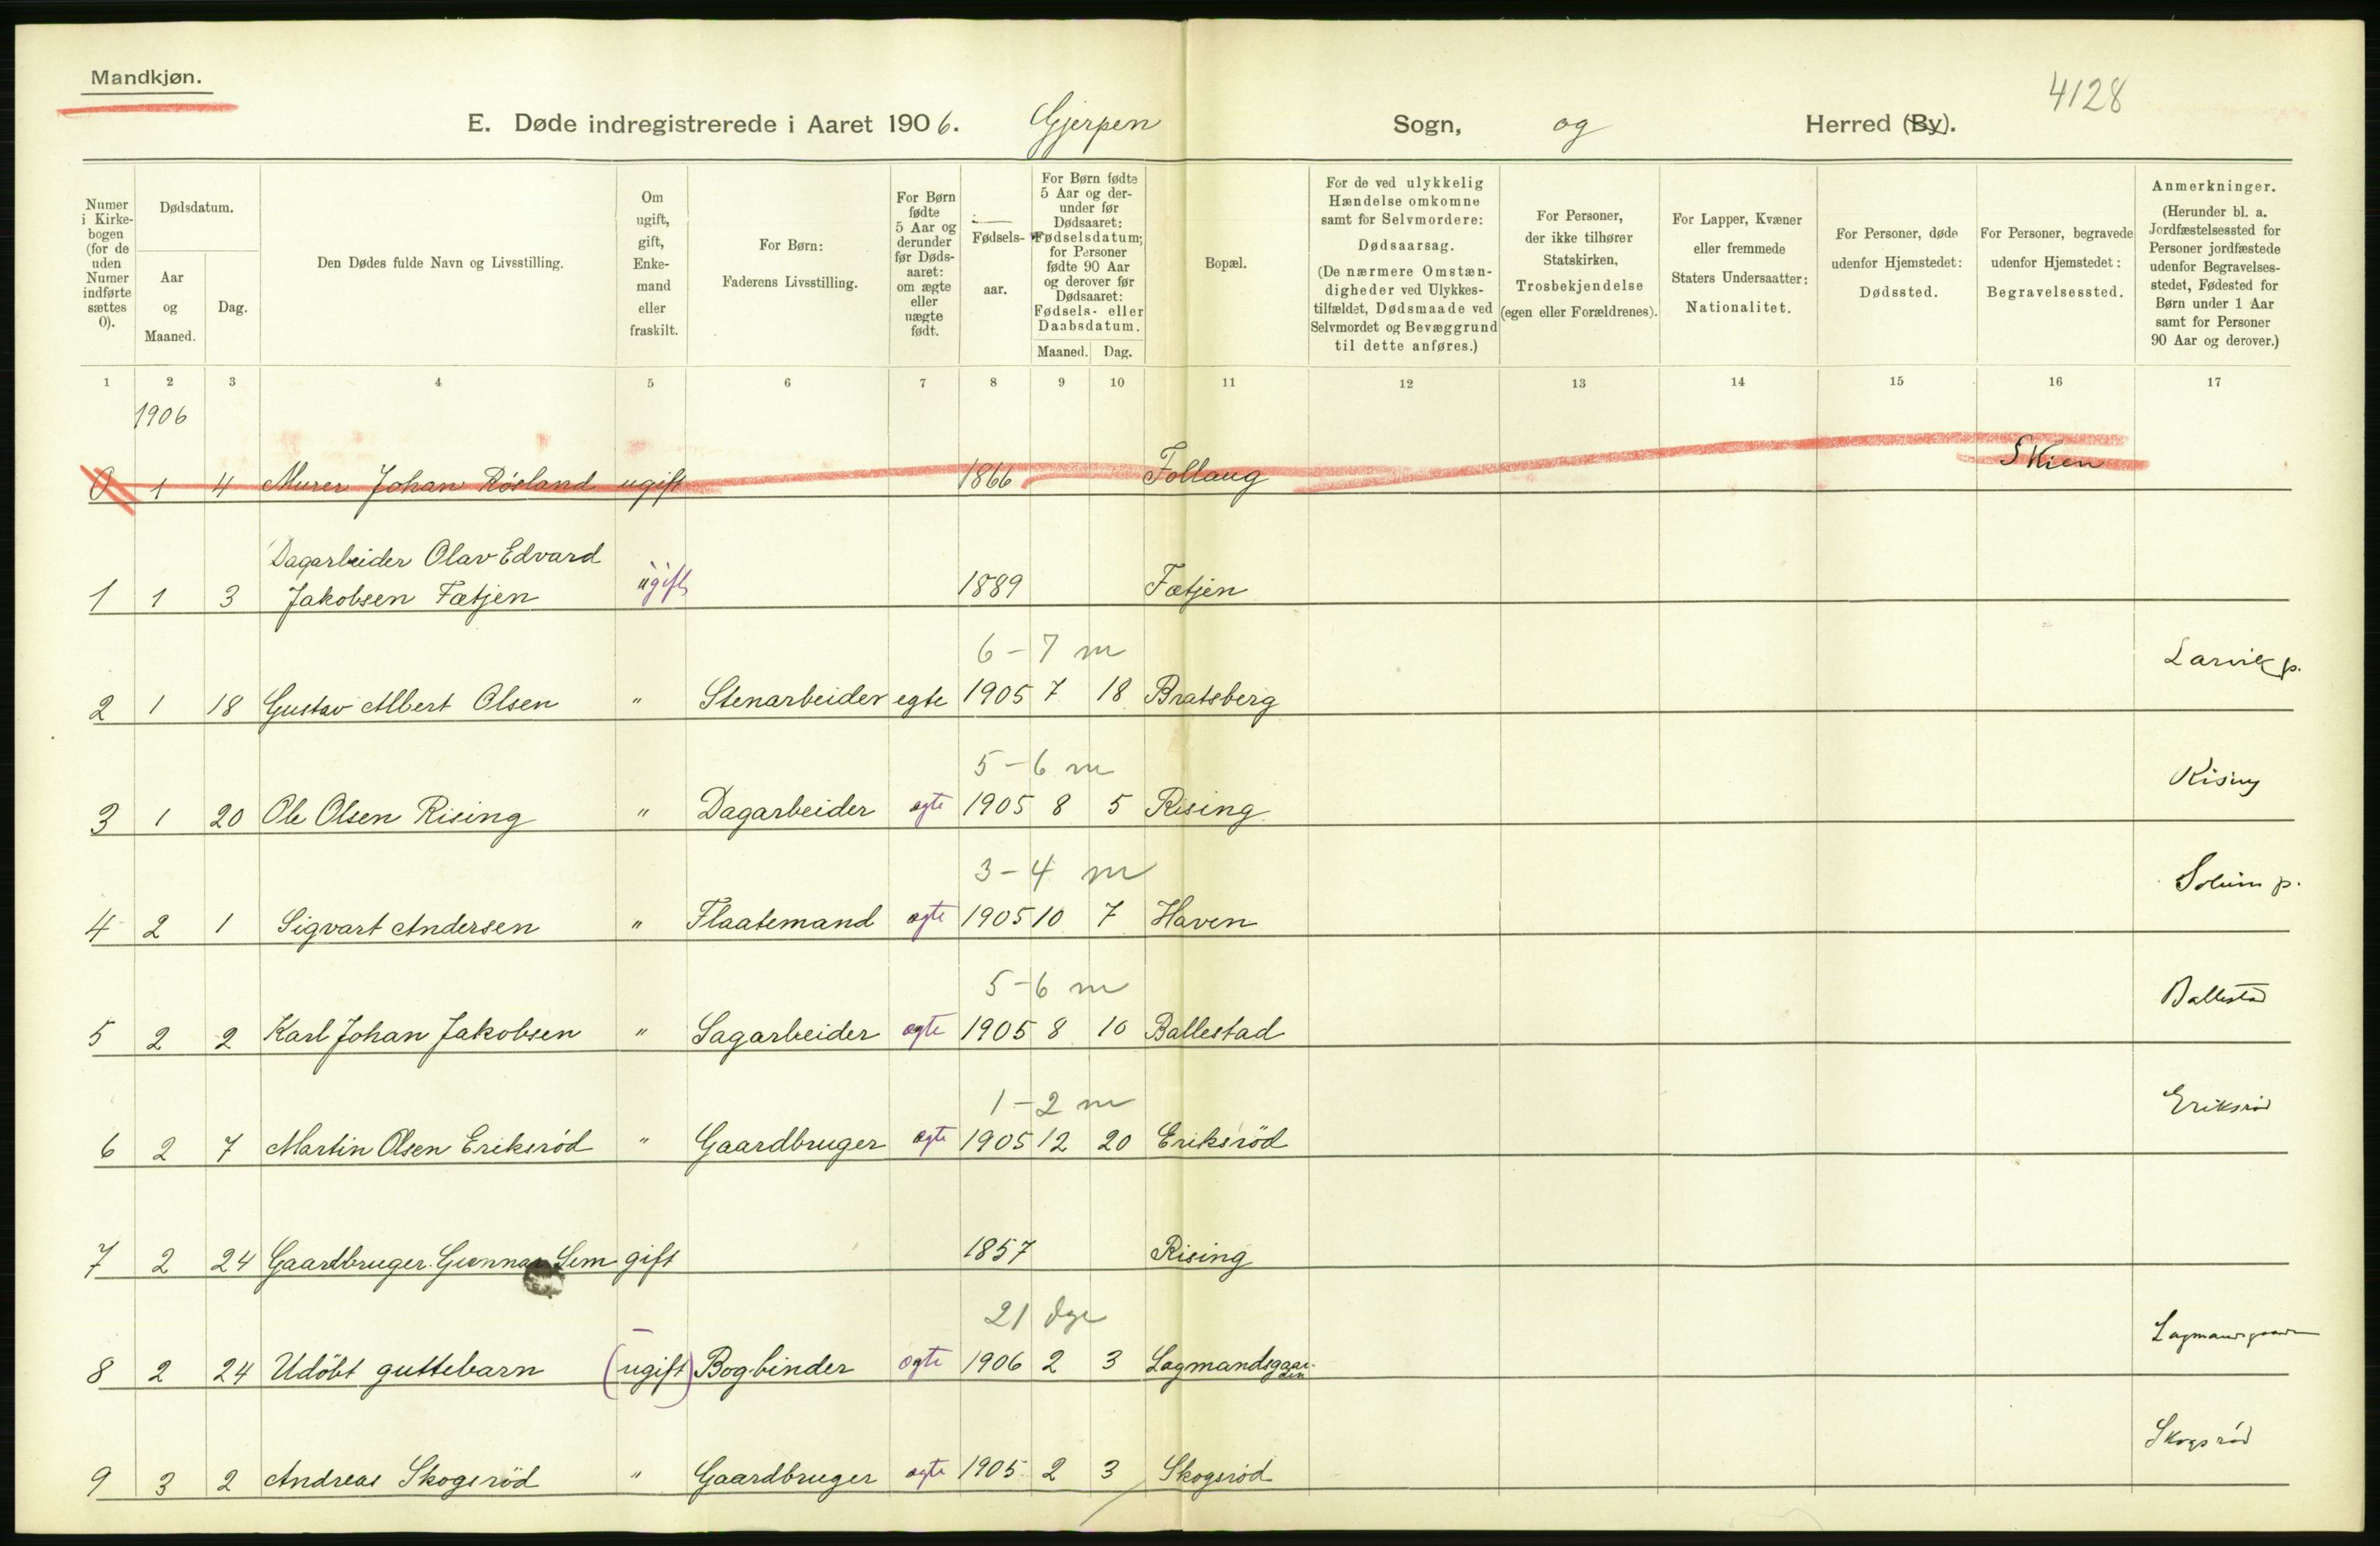 Mandkjøn.
4128
E. Døde indregistrerede i Aaret 1906. Gjerpen Sogn, og Herred (By).
Numer i Kirkebogen (for de uden Numer indførte sættes 0).
Dødsdatum.
Aar og Maaned.
Dag.
Den Dødes fulde Navn og Livsstilling.
Om ugift, gift, Enkemand eller fraskilt.
For Børn: Faderens Livsstilling.
For Børn fødte 5 Aar og derunder før Dødsaaret: om ægte eller uægte født.
Fødselsaar.
For Børn fødte 5 Aar og derunder før Dødsaaret: Fødselsdatum; for Personer fødte 90 Aar og derover før Dødsaaret: Fødsels- eller Daabsdatum.
Maaned. Dag.
Bopæl.
For de ved ulykkelig Hændelse omkomne samt for Selvmordere: Dødsaarsag. (De nærmere Omstændigheder ved Ulykkestilfældet, Dødsmaade ved Selvmordet og Bevæggrund til dette anføres.)
For Personer, der ikke tilhører Statskirken, Trosbekjendelse (egen eller Forældrenes).
For Lapper, Kvæner eller fremmede Staters Undersaatter: Nationalitet.
For Personer, døde udenfor Hjemstedet: Dødssted.
For Personer, begravede udenfor Hjemstedet: Begravelsessted.
Anmerkninger. (Herunder bl. a. Jordfæstelsessted for Personer jordfæstede udenfor Begravelsesstedet, Fødested for Børn under 1 Aar samt for Personer 90 Aar og derover.)
1 2 3 4 5 6 7 8 9 10 11 12 13 14 15 16 17
1906
0 1 4 Murer Johan Røsland ugift 1866 Follaug Skien
Dagarbeider Olav Edvard
1 1 3 Jakobsen Fætjen ugift 1889 Fætjen
6-7 m
2 1 18 Gustav Albert Olsen " Stenarbeider egte 1905 7 18 Bratsberg Larvik p.
5-6 m
3 1 20 Ole Olsen Rising " Dagarbeider ægte 1905 8 5 Rising Rising
3-4 m
4 2 1 Sigvart Andersen " Flaatemand ægte 1905 10 7 Haven Solum p.
5-6 m
5 2 2 Karl Johan Jakobsen " Sagarbeider ægte 1905 8 10 Ballestad Ballestad
1-2 m
6 2 7 Martin Olsen Eriksrød " Gaardbruger ægte 1905 12 20 Eriksrød Eriksrød
7 2 24 Gaardbruger Gunnar Sem gift 1857 Rising
21 dge
8 2 24 Udöbt guttebarn (ugift) Bogbinder ægte 1906 2 3 Lagmandsgaarden Lagmandsgaarden
9 3 2 Andreas Skogsröd " Gaardbruger ægte 1905 2 3 Skogsröd Skogsrød